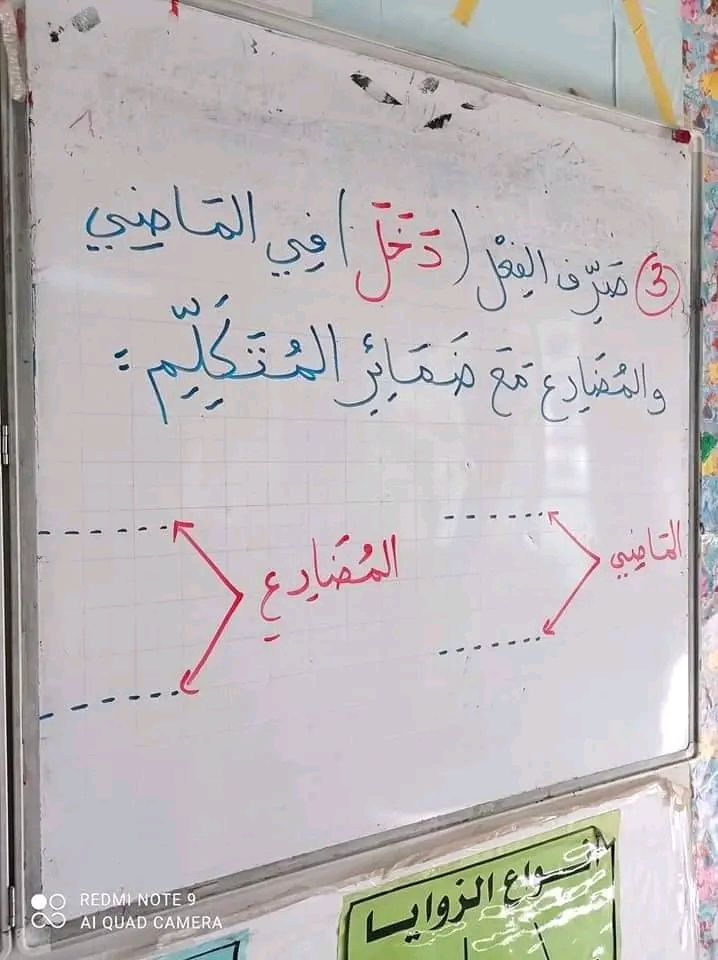 3 صَرِّف الفِعْل (دَخَلَ) فِي المَاضِي
والمُضَارِع مَعَ ضَمَائِرِ المُتَكَلِّمِ :
المَاضِي
المُضَارِعِ
أنواع الزوايا
REDMI NOTE 9
AI QUAD CAMERA